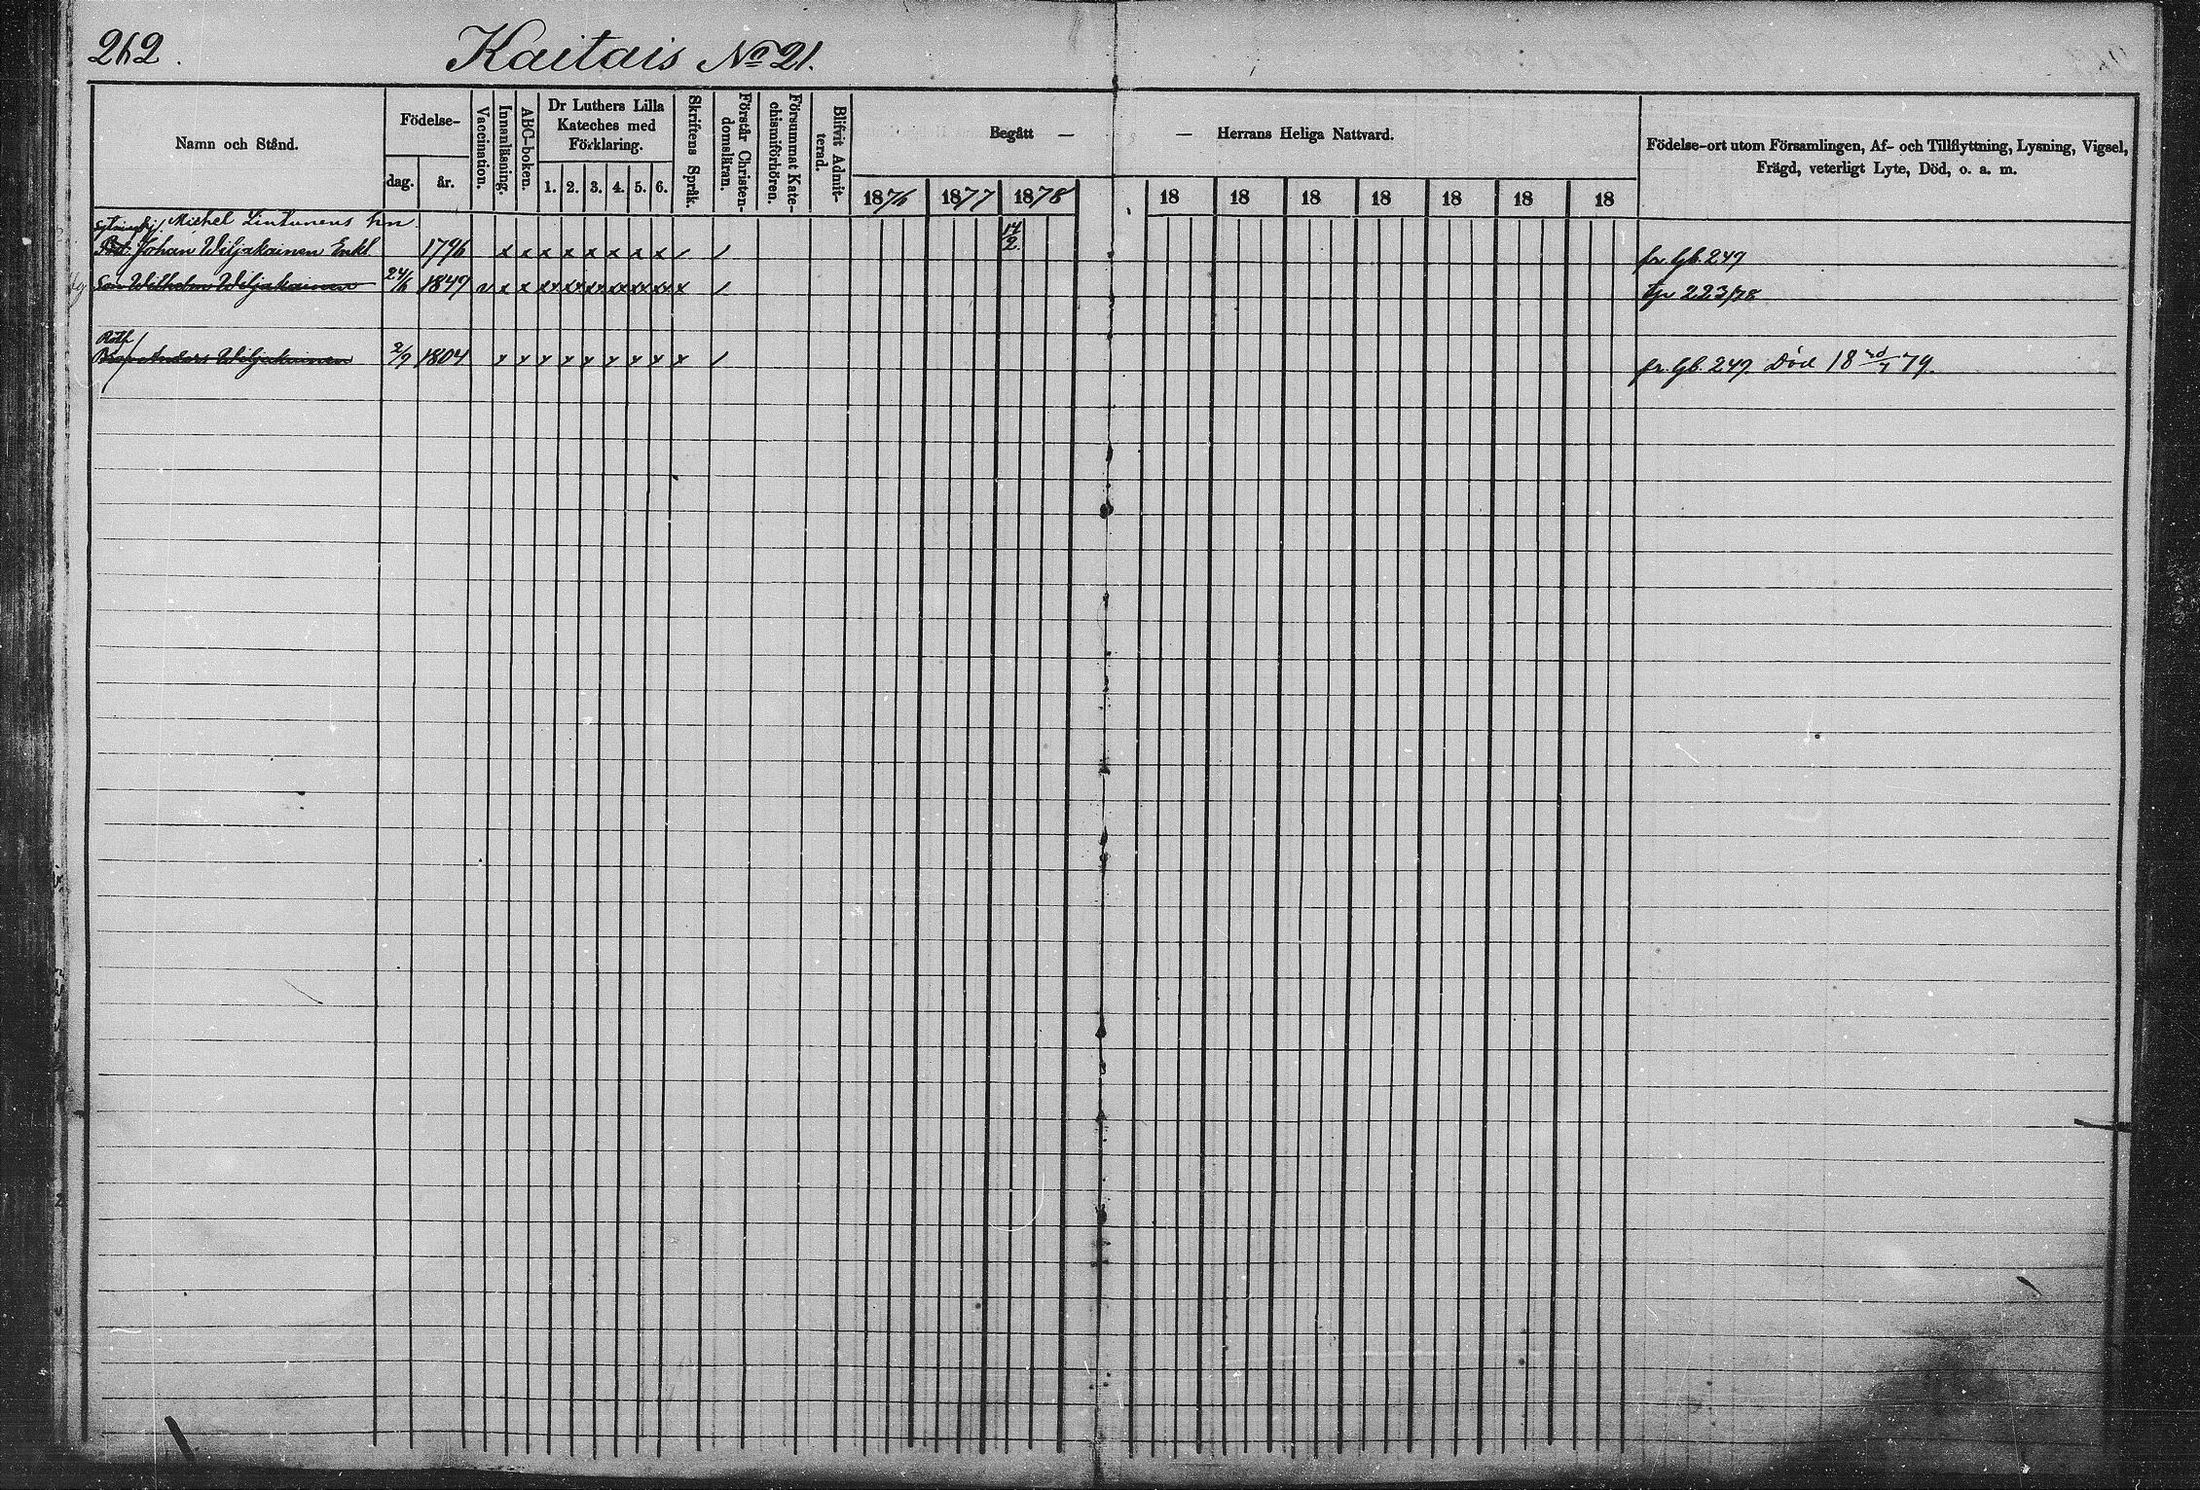 262.
Kaitais No 21.
Namn och Stånd.
Födelse-
dag. år.
Vaccination.
Innanläsning.
ABC-boken.
Dr Luthers Lilla
Kateches med
Förklaring.
1. 2. 3. 4. 5. 6.
Skriftens Språk.
Förstår Christen-
domsläran.
Försummat Kate-
chismiförhören.
Blifvit Admit-
terad.
Begått — — Herrans Heliga Nattvard.
1876 1877 1878 18 18 18 18 18 18 18
Födelse-ort utom Församlingen, Af- och Tillflyttning, Lysning, Vigsel,
Frägd, veterligt Lyte, Död, o. a. m.
Michel Lintunens
Johan Wiljakainen Enkl. 1796 x x x x x x x x / / 17/2 fr. Gb. 247
Son Wilhelm Wiljakainen 24/6 1849 v x x x x x x x x x / 223/78
Roth
Anders Wiljakainen 2/9 1804 x x x x x x x x x / fr. Gb. 247. Död 18 79.